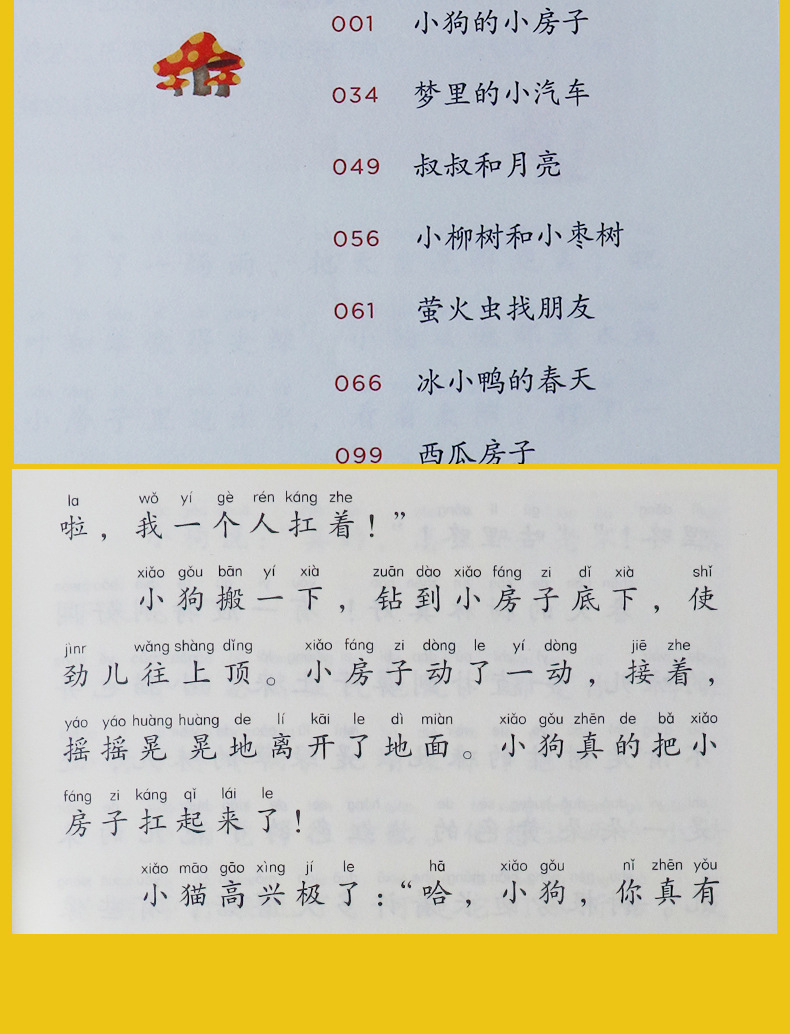 001 小狗的小房子
034 梦里的小汽车
049 叔叔和月亮
056 小柳树和小枣树
061 萤火虫找朋友
066 冰小鸭的春天
099 西瓜房子
la wǒ yí gè rén káng zhe
啦，我一个人扛着！”
xiǎo gǒu bān yí xià zuān dào xiǎo fáng zi dǐ xià shǐ
小狗搬一下，钻到小房子底下，使
jìnr wǎng shàng dǐng xiǎo fáng zi dòng le yí dòng jiē zhe
劲儿往上顶。小房子动了一动，接着，
yáo yáo huàng huàng de lí kāi le dì miàn xiǎo gǒu zhēn de bǎ xiǎo
摇摇晃晃地离开了地面。小狗真的把小
fáng zi káng qǐ lái le
房子扛起来了！
xiǎo māo gāo xìng jí le hā xiǎo gǒu nǐ zhēn yǒu
小猫高兴极了：“哈，小狗，你真有